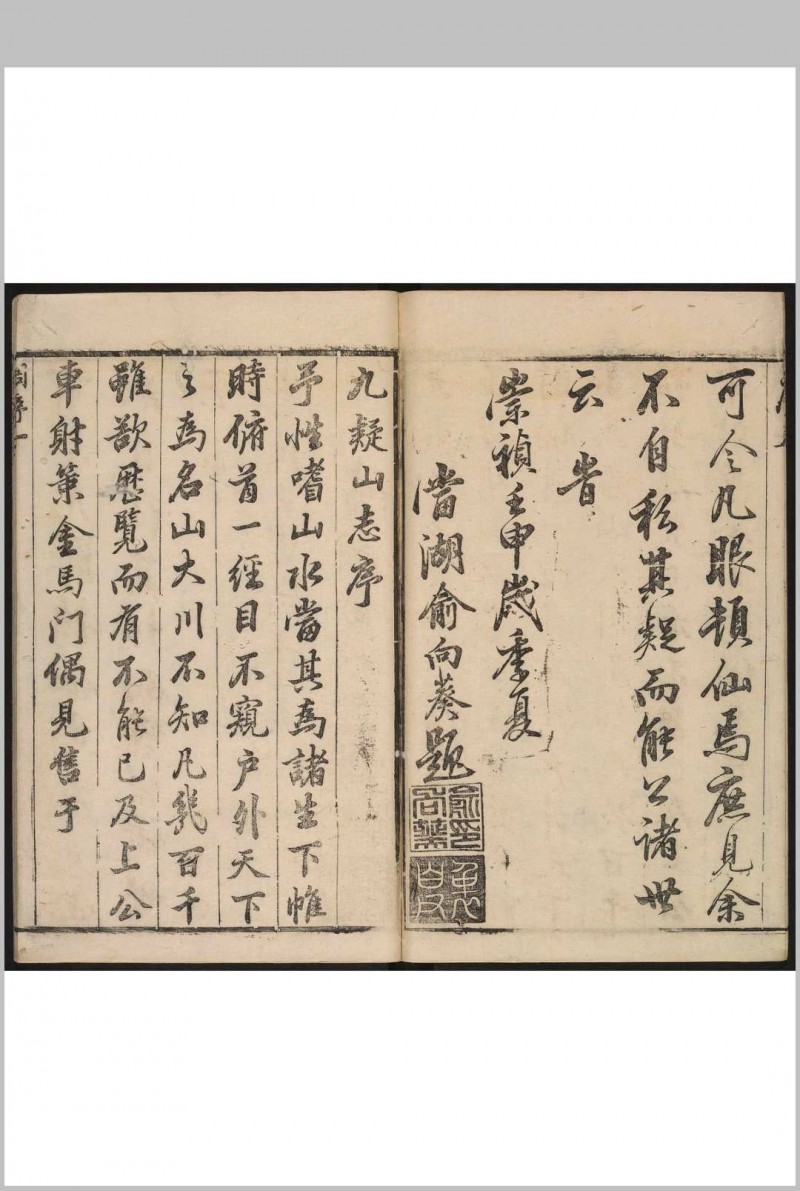 可令凡眼頓仙焉庶見余
不自私其疑而能公諸世
云旹
崇禎壬申歲季夏
當湖俞向葵題
九疑山志序
予性嗜山水當其為諸生下帷
時俯首一經目不窺户外天下
之為名山大川不知凡幾百千
雖欲歷覽而有不能已及上公
車射策金馬门偶見售于